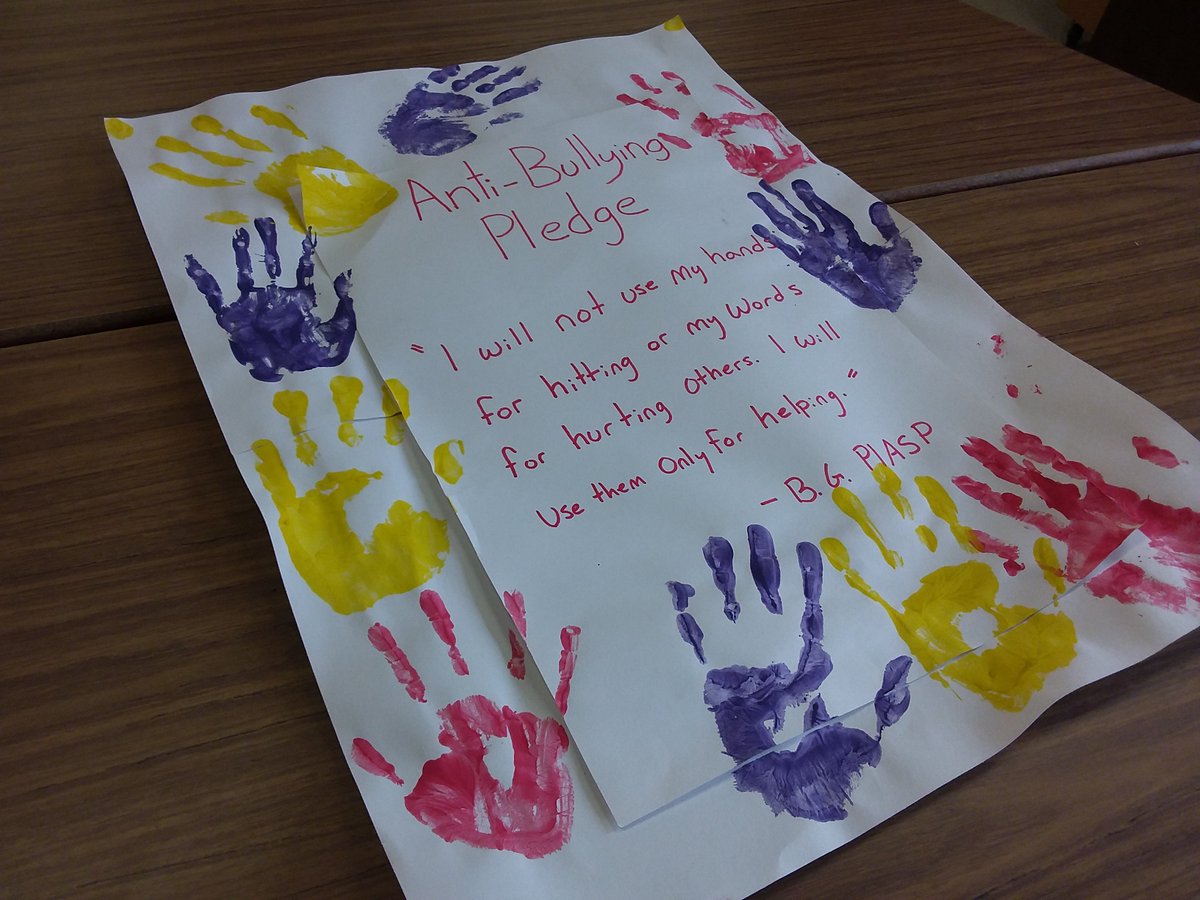 Anti-Bullying
Pledge
"I will not use my hands
for hitting or my words
for hurting others. I will
use them only for helping."
- B.G. PLASP